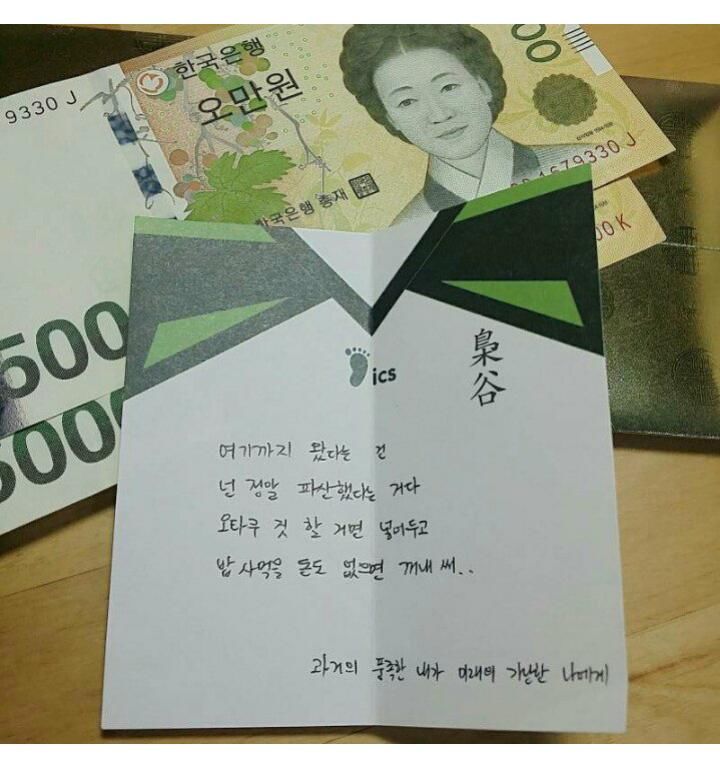 9330 J
한국은행
오만원
00
1679330 J
한국은행 총재
00 K
500
5000
ics
梟
谷
여기까지 왔다는 건
넌 정말 파산했다는 거다
오타쿠 것 할 거면 넣어두고
밥 사먹을 돈도 없으면 꺼내 써..
과거의 풍족한 내가 미래의 가난한 나에게